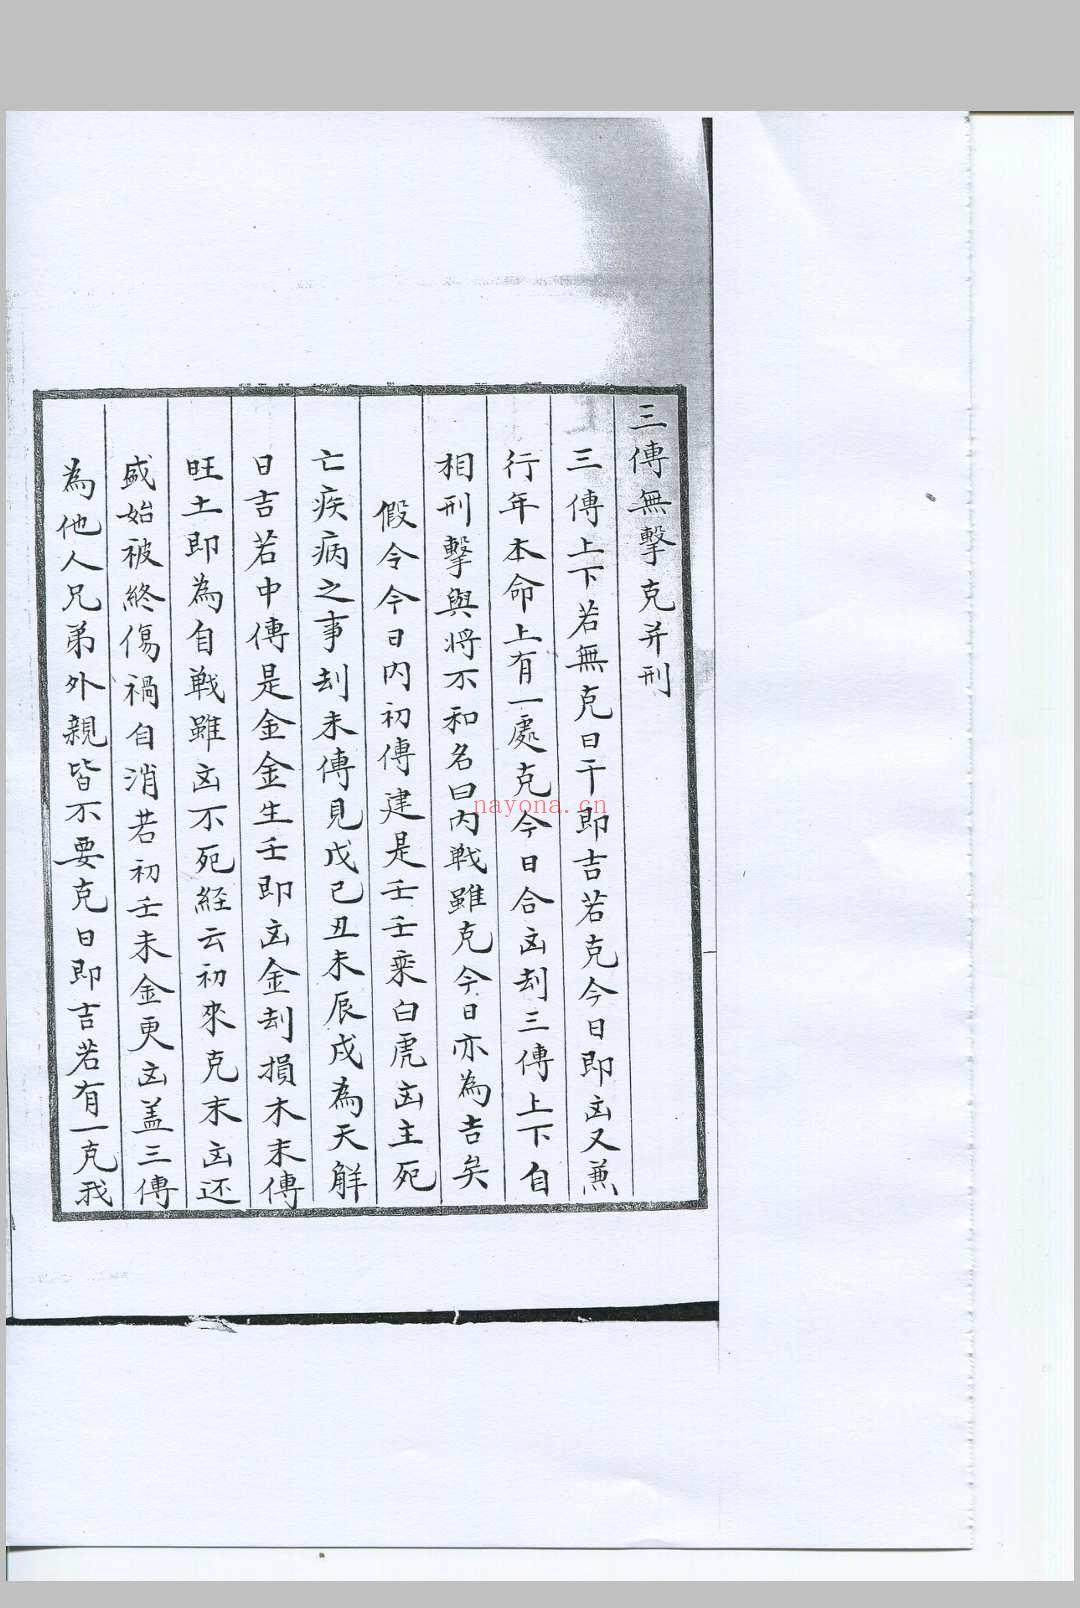 三傳無擊克并刑
三傳上下若無克日干即吉若克今日即㐫又兼
行年本命上有一處克今日合㐫刦三傳上下自
相刑擊與將不和名曰内戰雖克今日亦為吉矣
假令今日内初傳建是壬壬乘白虎㐫主死
亡疾病之事刦末傳見戊己丑未辰戌為天解
日吉若中傳是金金生壬即㐫金刦損木末傳
旺土即為自戰雖㐫不死経云初來克末㐫还
盛始被終傷禍自消若初壬末金更㐫盖三傳
為他人兄弟外親皆不要克日即吉若有一克我
nayona.cn